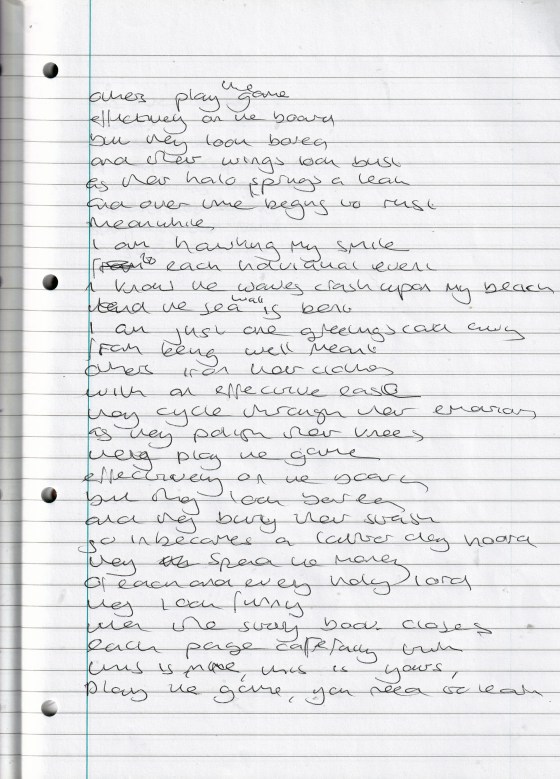 others play the game
effectively on the board
but they look bored
and their wings look bust
as their halo springs a leak
and over time begins to rust
meanwhile,
I am hawking my smile
to each individual event
I know the waves crash upon my beach
and the sea wall is bent
I am just one greetings card away
from being well meant
others iron their clothes
with an effective ease
they cycle through their emotions
as they polish their knees
they play the game
effectively on the board
but they look bored
and they bury their stash
so it becomes a latter day hoard
they spend the money
of each and every holy lord
they look funny
when the story book closes
each page carefully with
this is mine, this is yours,
play the game, you need to learn